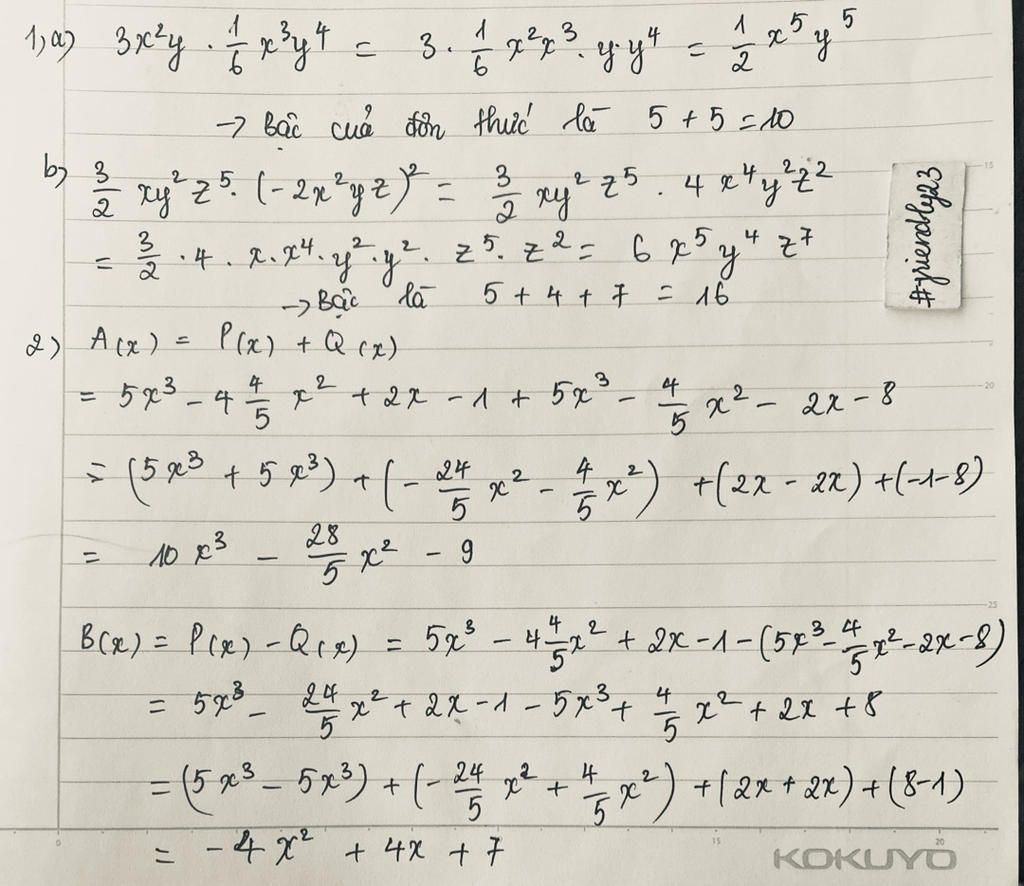 1, a) 3x²y · 1/6 x³y⁴ = 3 · 1/6 x²x³ · y·y⁴ = 1/2 x⁵y⁵
→ Bậc của đơn thức là 5 + 5 = 10
b) 3/2 xy²z⁵ · (-2x²yz)² = 3/2 xy²z⁵ · 4x⁴y²z²
= 3/2 · 4 · x·x⁴·y²·y²· z⁵·z² = 6 x⁵y⁴z⁷
→ Bậc là 5 + 4 + 7 = 16
#friendly23
2) A(x) = P(x) + Q(x)
= 5x³ - 4 4/5 x² + 2x - 1 + 5x³ - 4/5 x² - 2x - 8
= (5x³ + 5x³) + (- 24/5 x² - 4/5 x²) + (2x - 2x) + (-1-8)
= 10x³ - 28/5 x² - 9
B(x) = P(x) - Q(x) = 5x³ - 4 4/5 x² + 2x - 1 - (5x³ - 4/5 x² - 2x - 8)
= 5x³ - 24/5 x² + 2x - 1 - 5x³ + 4/5 x² + 2x + 8
= (5x³ - 5x³) + (- 24/5 x² + 4/5 x²) + (2x + 2x) + (8-1)
= -4x² + 4x + 7
KOKUYO